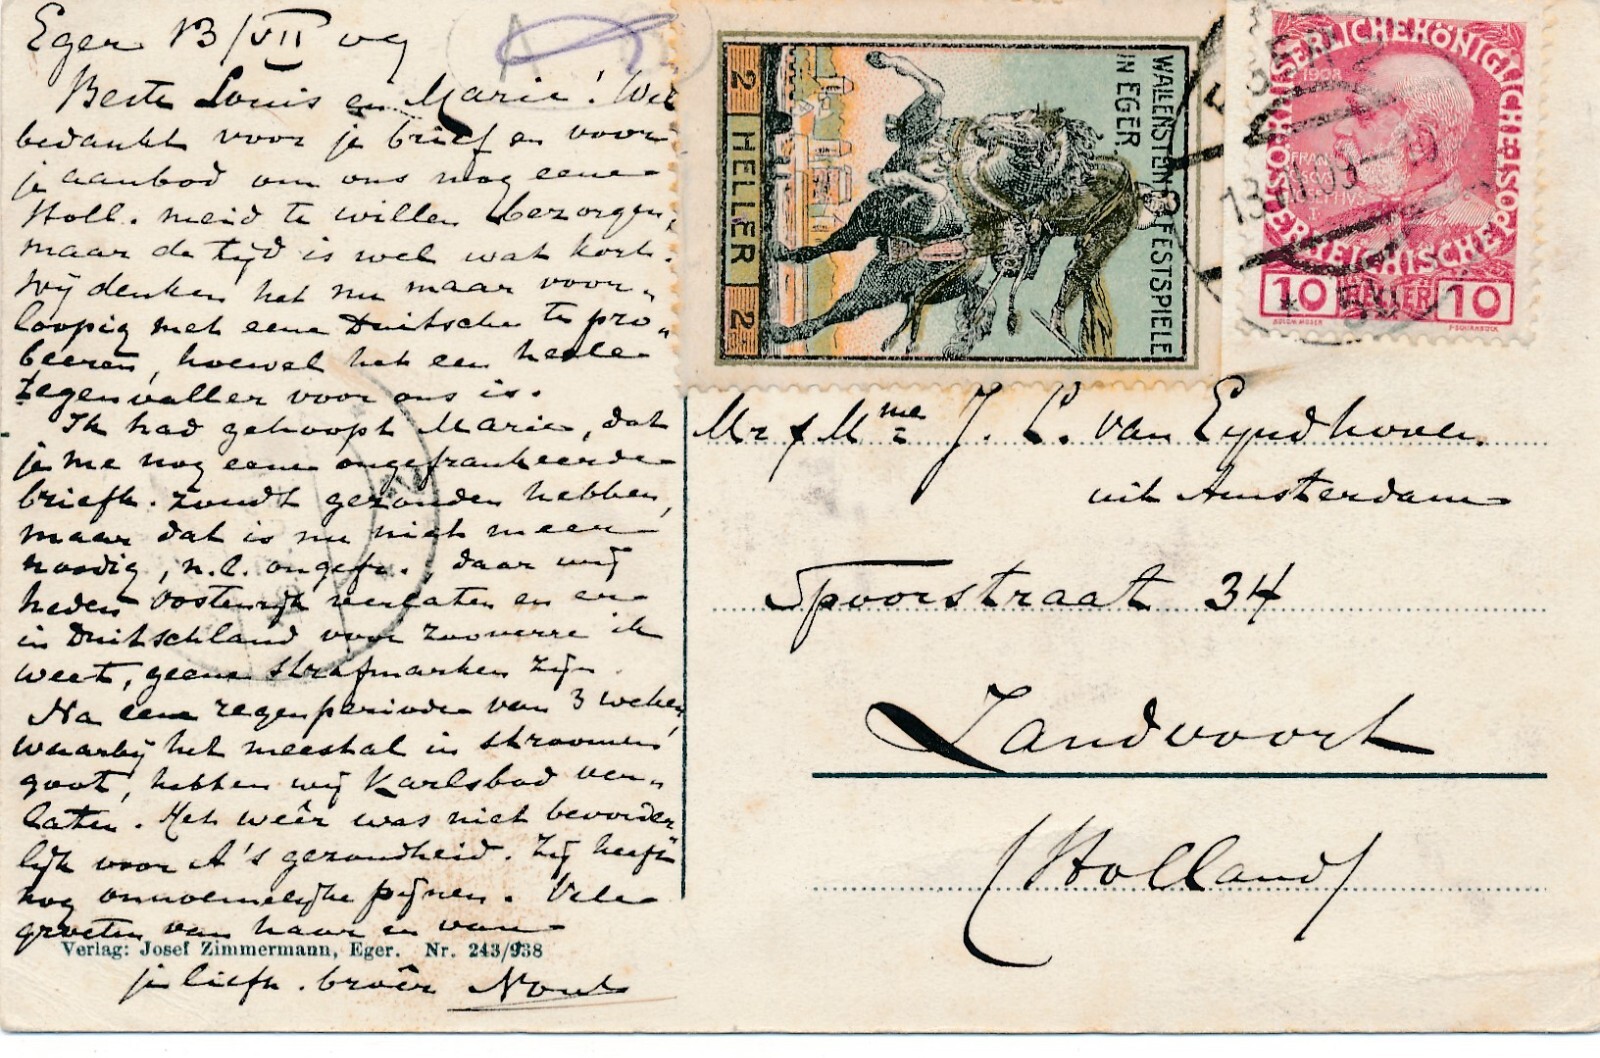 Eger 13/VII 09
Beste Louis en Marie! Wel
bedankt voor je brief en voor
je aanbod om ons nog eene
Holl. meid te willen bezorgen,
maar de tijd is wel wat kort.
Wij denken het nu maar voor-
loopig met eene Duitsche te pro-
beeren, hoewel het een heele
tegenvaller voor ons is.
Ik had gehoopt Marie, dat
je me nog eene ongefrankeerde
briefk. zoudt gezonden hebben,
maar dat is nu niet meer
noodig, n.l. ongefr., daar wij
heden Oostenrijk verlaten en er
in Duitschland voor zooverre ik
weet, geene strafmarken zijn.
Na eene regenperiode van 3 weken,
waarbij het meestal in stroomen
goot, hebben wij Karlsbad ver-
laten. Het weêr was niet bevorder
lijk voor A's gezondheid. Zij heeft
nog onnoemelijke pijnen. Vele
groeten van haar en van
je liefh. broêr Nout
Verlag: Josef Zimmermann, Eger. Nr. 243/938
WALLENSTEIN FESTSPIELE
IN EGER.
2 HELLER 2
KAISERLICHE KÖNIGLICHE
ÖSTERREICHISCHE POST
1908
FRAN
10 HELLER 10
EGER
13 VII 09
Mr & Mme J. L. van Eyndhoven.
uit Amsterdam
Spoorstraat 34
Zandvoort
(Holland)